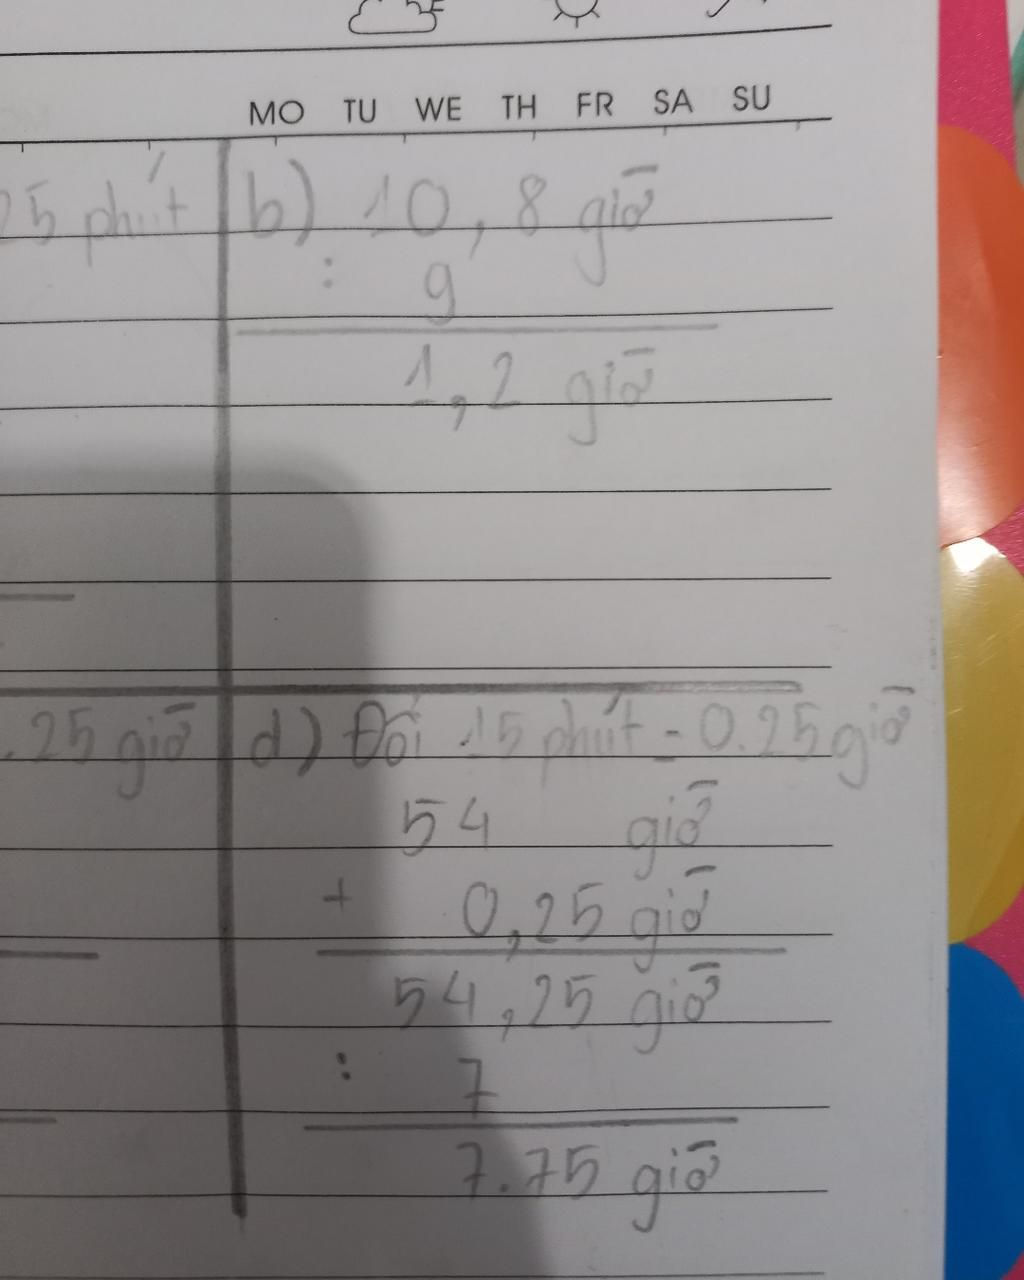 MO TU WE TH FR SA SU
25 phút
b) 10,8 giờ
: 9
1,2 giờ
.25 giờ
d) Đổi 15 phút = 0.25 giờ
54 giờ
+ 0,25 giờ
54,25 giờ
: 7
7.75 giờ